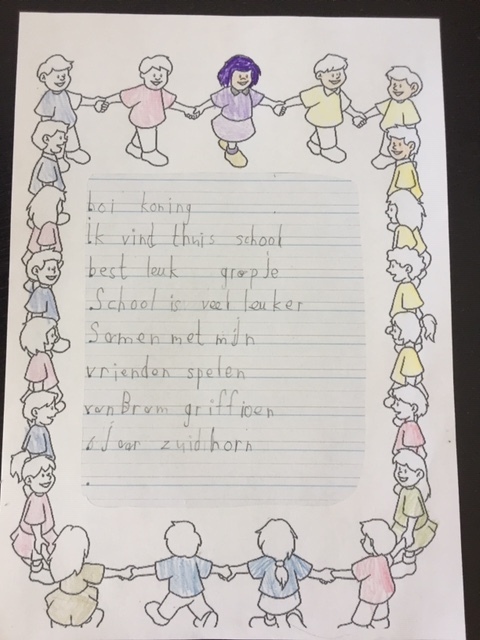 hoi koning
ik vind thuis school
best leuk grapje
School is veel leuker
Samen met mijn
vrienden spelen
van Bram griffioen
6 Jaar zuidhorn
.